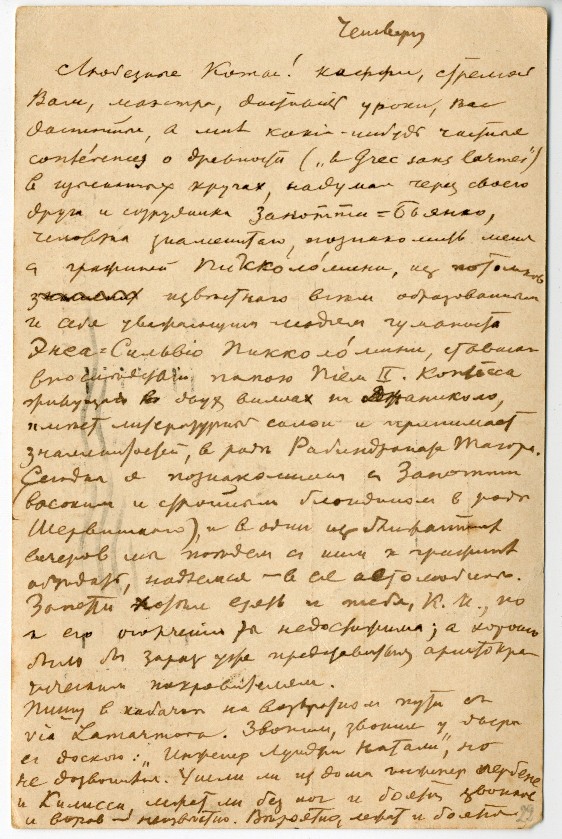 Четверг
Любезные Коты! Каффи, стремясь
Вам, маэстро, доставить уроки, Вас
достойные, а мнѣ какія-нибудь частныя
conférences о древности („le Grec sans larmes")
в изысканных кругах, надумал через своего
друга и сотрудника Занотти=Бьянко,
человѣка знаменитаго, познакомить меня
с графиней Пикколо́мини, из потомков
извѣстнаго всѣм образованным
и себя уважающим людям гуманиста
Энея=Сильвіо Пикколо́мини, ставшаго
впослѣдствіи папою Піем II. Контесса
живущая в двух виллах на Джаниколо,
имѣет литературный салон и принимает
знаменитостей, в родѣ Рабиндраната Тагора.
Сегодня я познакомился с Занотти
(высоким и стройным блондином в родѣ
Шервинскаго), и в один из ближайших
вечеров мы пойдем с ним к графинѣ
обѣдать, надѣемся — в ея автомобилѣ.
Занотти хотѣл взять и тебя, К. И., но
к его огорченію ты недосяжима; а хорошо
было бы зараз уже представиться аристокра-
тическим покровителем.
Пишу в кабачкѣ на возвратном пути с
via Lamarmora. Звонили, звонили у двери
с доскою: „Инженер Луиджи Натали", но
не дозвонился. Ушли ли из дома инженер
и Килисси, лежат ли без ног и боятся звонков
и воров — неизвѣстно. Вѣроятно, лежат и боятся.
29